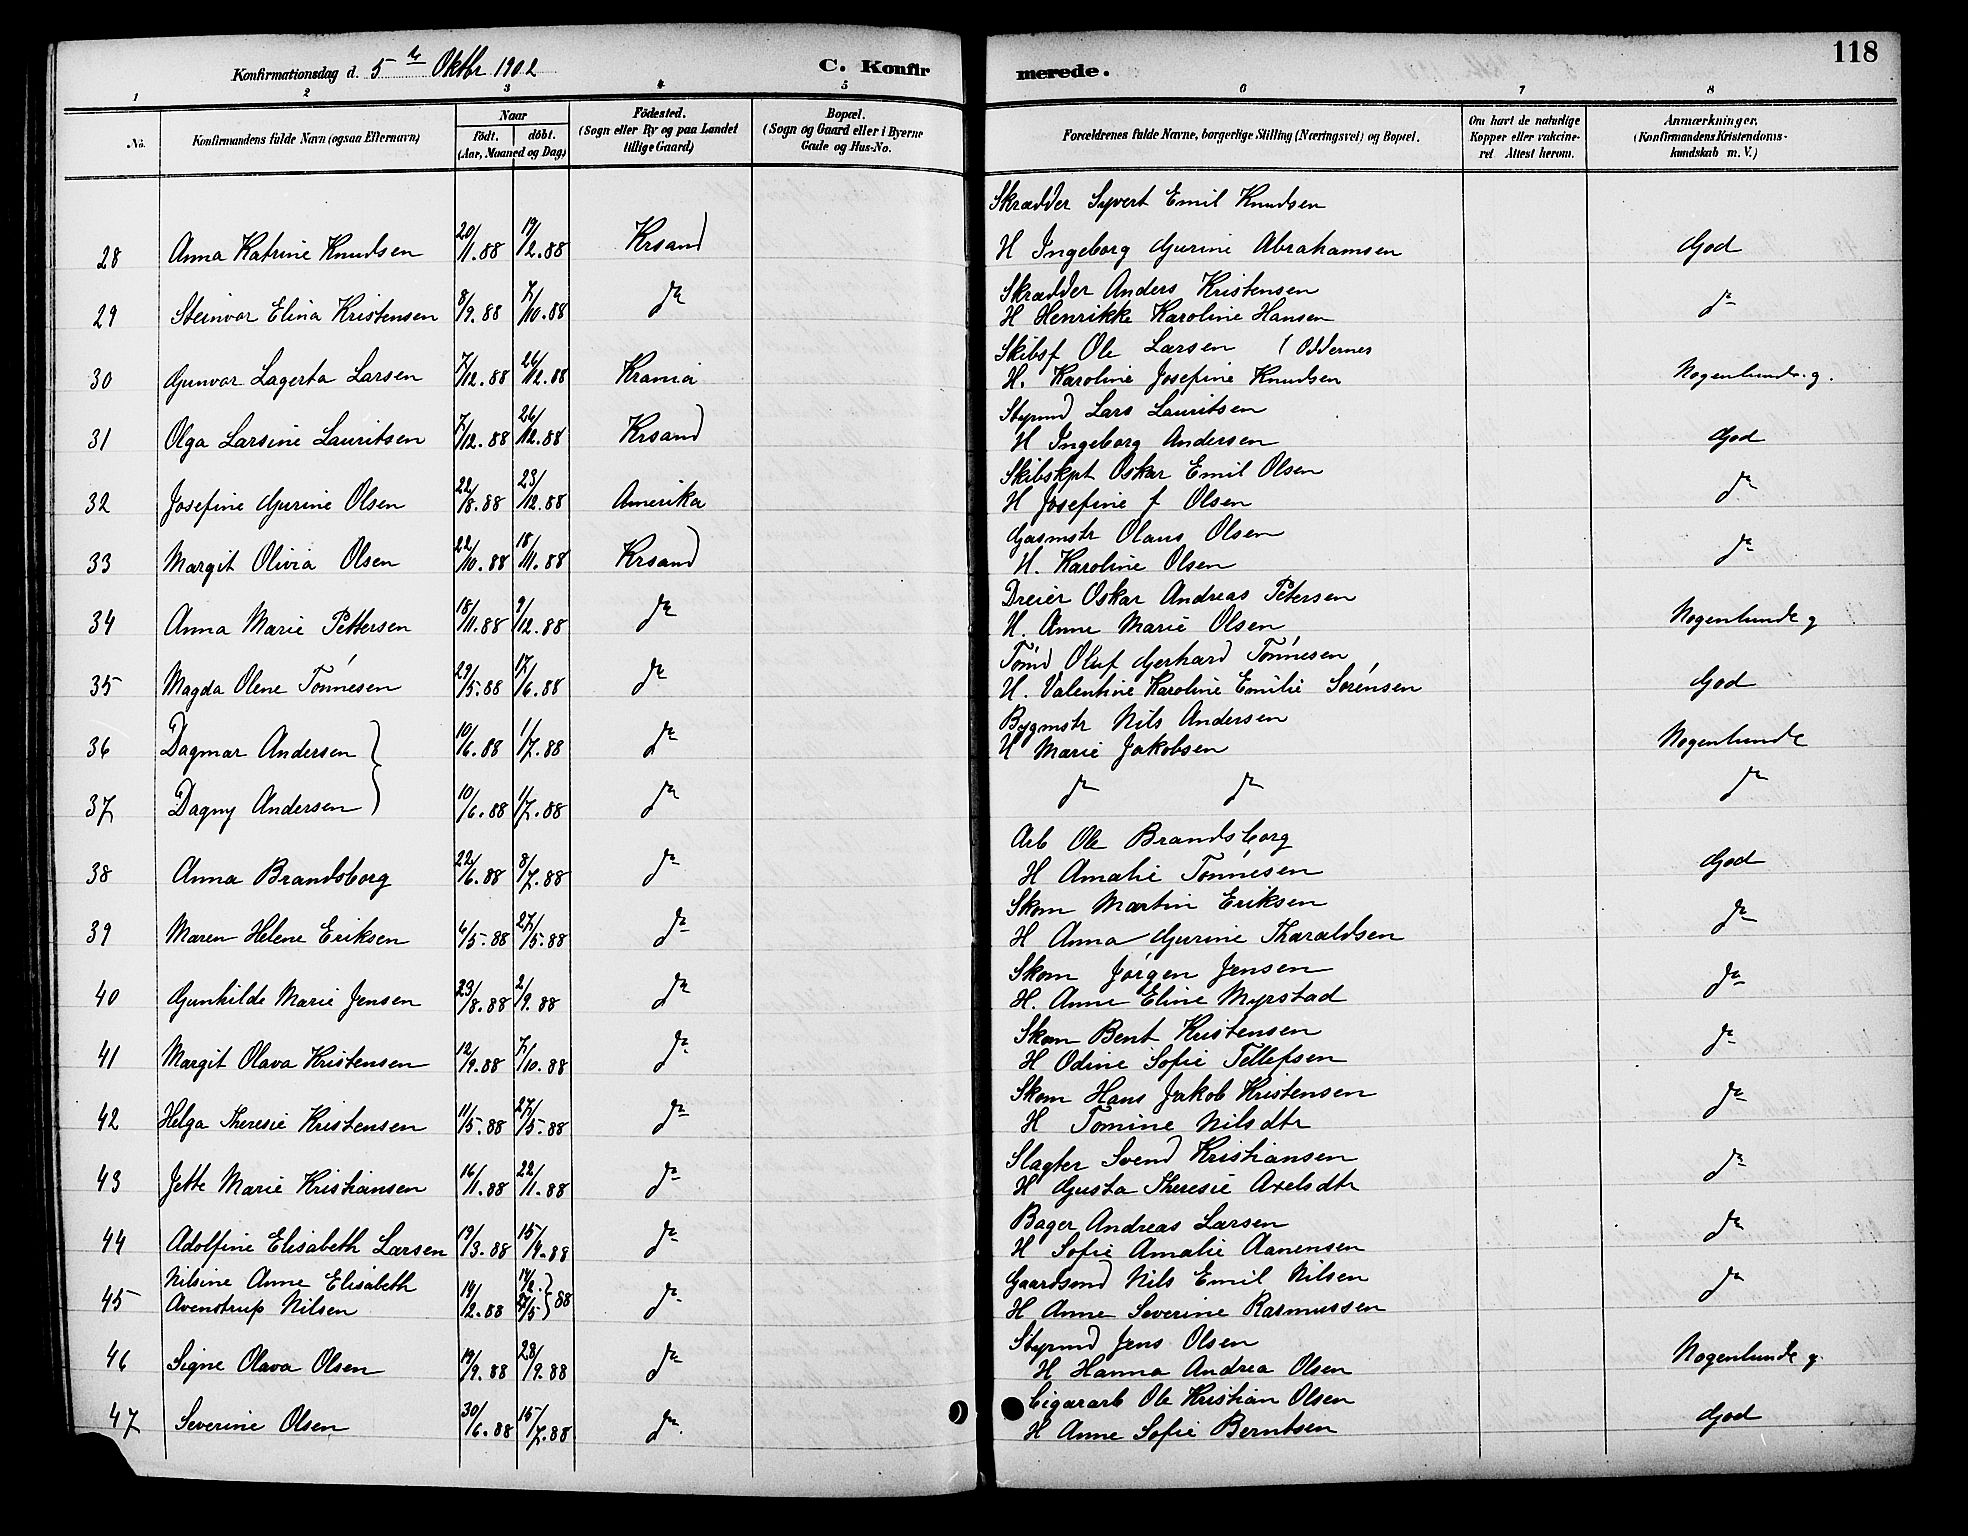 Konfirmationsdag d. 5te Oktbr 1902
C. Konfirmerede.
118
1 2 3 4 5 6 7 8
No.
Konfirmandens fulde Navn (ogsaa Efternavn)
Naar
födt. döbt.
(Aar, Maaned og Dag)
Födested.
(Sogn eller By og paa Landet
tillige Gaard)
Bopæl.
(Sogn og Gaard eller i Byerne
Gade og Hus-No.
Forældrenes fulde Navne, borgerlige Stilling (Næringsvei) og Bopæl.
Om havt de naturlige
Kopper eller vakcine-
ret Attest herom.
Anmærkninger.
(Konfirmandens Kristendoms-
kundskab m. V.)
Skrædder Syvert Emil Knudsen
28 Anna Katrine Knudsen 20/11.88 19/12.88 Krsand H Ingeborg Gurine Abrahamsen God
Skrædder Anders Kristensen
29 Steinvor Elina Kristensen 8/9.88 7/10.88 do H Henrikke Karoline Hansen do
Skibsf Ole Larsen (Oddernes
30 Gunvor Lagerta Larsen 7/12.88 26/12.88 Krania H. Karoline Josefine Knudsen Nogenlunde. g.
Styrmd Lars Lauritsen
31 Olga Larsine Lauritsen 7/12.88 26/12.88 Krsand H Ingeborg Andersen God
Skibskpt Oskar Emil Olsen
32 Josefine Gurine Olsen 22/8.88 23/12.88 Amerika H Josefine f Olsen do
Gasmstr Olaus Olsen
33 Margit Olivia Olsen 22/10.88 18/11.88 Krsand H. Karoline Olsen do
Dreier Oskar Andreas Petersen
34 Anna Marie Pettersen 18/11.88 9/12.88 do H. Anne Marie Olsen Nogenlunde g
Tömd Oluf Gerhard Tönnesen
35 Magda Olene Tönnesen 29/5.88 17/6.88 do H. Valentine Karoline Emilie Sörensen God
Bygmstr Nils Andersen
36 Dagmar Andersen } 10/6.88 1/7.88 do H Marie Jakobsen Nogenlunde
37 Dagny Andersen } 10/6.88 1/7.88 do do do do
Arb Ole Brandsborg
38 Anna Brandsborg 22/6.88 8/7.88 do H Amalie Tönnesen God
Skom Martin Eriksen
39 Maren Helene Eriksen 6/5.88 27/5.88 do H Anna Gurine Tharaldsen do
Skom Jörgen Jensen
40 Gunhilde Marie Jensen 23/8.88 2/9.88 do H. Anne Eline Myrstad do
Skom Bent Kristensen
41 Margit Olava Kristensen 12/9.88 7/10.88 do H Odine Sofie Tellefsen do
Skom Hans Jakob Kristensen
42 Helga Theresie Kristensen 11/5.88 27/5.88 do H Tomine Nilsdtr do
Slagter Svend Kristiansen
43 Jette Marie Kristiansen 16/11.88 22/11.88 do H Gusta Theresie Axelsdtr do
Bager Andreas Larsen
44 Adolfine Elisabeth Larsen 19/3.88 15/4.88 do H Sofie Amalie Aanensen do
Nilsine Anne Elisabeth 14/2. } Gaardsmd Nils Emil Nilsen
45 Avenstrup Nilsen 14/2.88 27/5 } 88 do H Anne Severine Rasmussen do
Styrmd Jens Olsen
46 Signe Olava Olsen 19/9.88 28/9.88 do H Hanna Andrea Olsen Nogenlunde g
Cigararb Ole Kristian Olsen
47 Severine Olsen 30/6.88 15/7.88 do H Anne Sofie Berntsen God